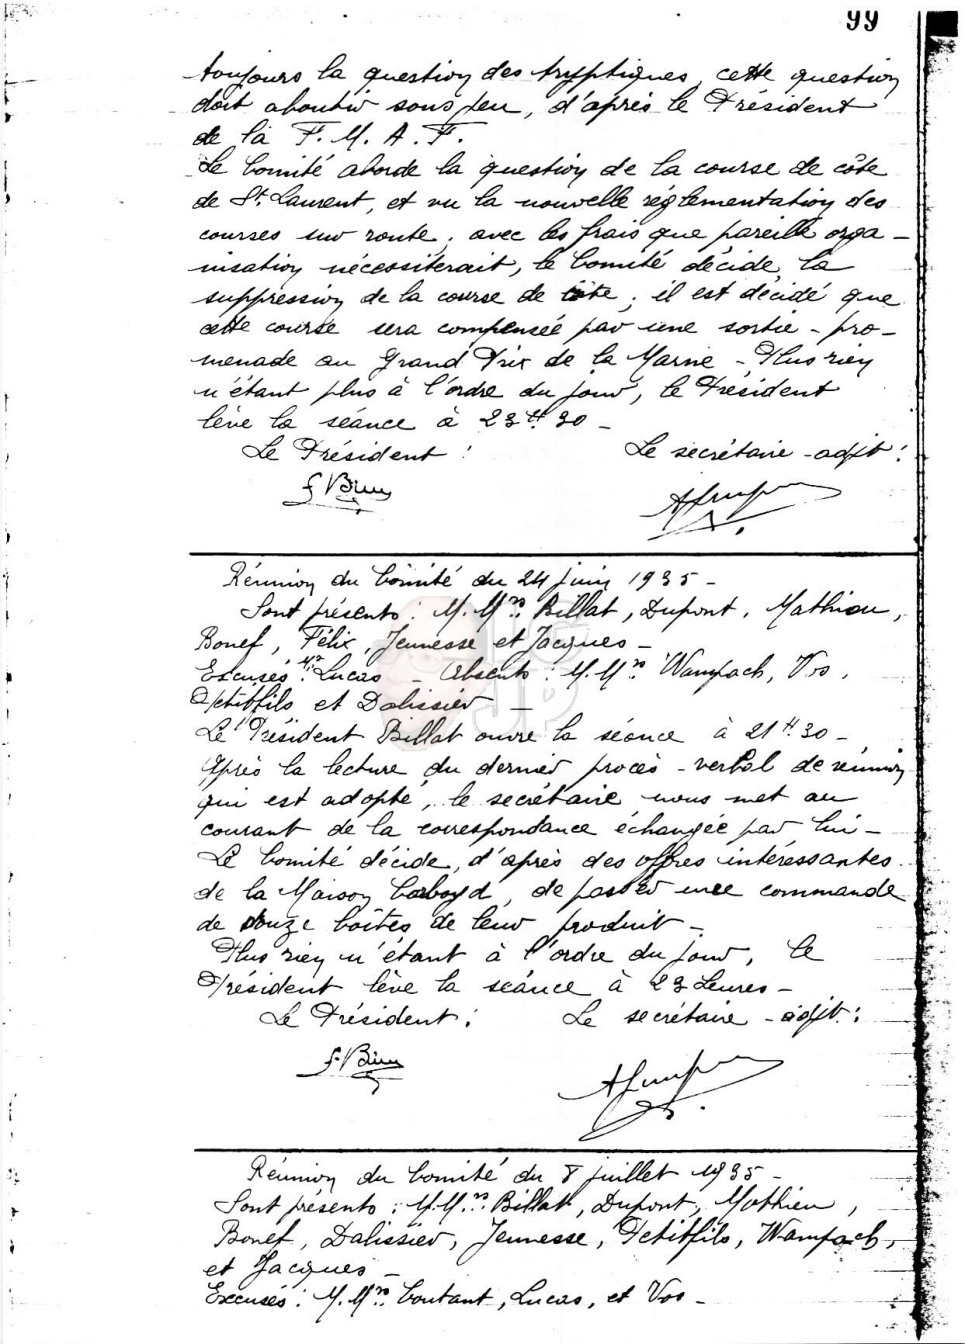 99
toujours la question des tryptiques, cette question
doit aboutir sous peu, d'après le Président
de la F. M. A. F.
Le Comité aborde la question de la course de côte
de St. Laurent, et vu la nouvelle réglementation des
courses sur route, avec les frais que pareille orga-
nisation nécessiterait, le Comité décide, la
suppression de la course de côte; il est décidé que
cette course sera compensée par une sortie-pro-
menade au Grand Prix de la Marne - Plus rien
n'étant plus à l'ordre du jour, le Président
lève la séance à 23H.30 -
Le Président : Le secrétaire-adjt :
Réunion du Comité du 24 juin 1935 -
Sont présents : M.Mrs Billat, Dupont, Mathieu,
Bonef, Félix, Jeunesse et Jacques -
Excusés : Mr Lucas - Absents : M.Mrs Wampach, Vos,
Petitfils et Dalissier -
Le Président Billat ouvre la séance à 21H.30 -
Après la lecture du dernier procès-verbal de réunion
qui est adopté, le secrétaire nous met au
courant de la correspondance échangée par lui -
Le Comité décide, d'après des offres intéressantes
de la Maison, de passer une commande
de douze boîtes de leur produit -
Plus rien n'étant à l'ordre du jour, le
Président lève la séance à 23 heures -
Le Président : Le secrétaire-adjt :
Réunion du Comité du 8 juillet 1935 -
Sont présents : M.Mrs Billat, Dupont, Mathieu,
Bonef, Dalissier, Jeunesse, Petitfils, Wampach,
et Jacques -
Excusés : M.Mrs Coutant, Lucas, et Vos -